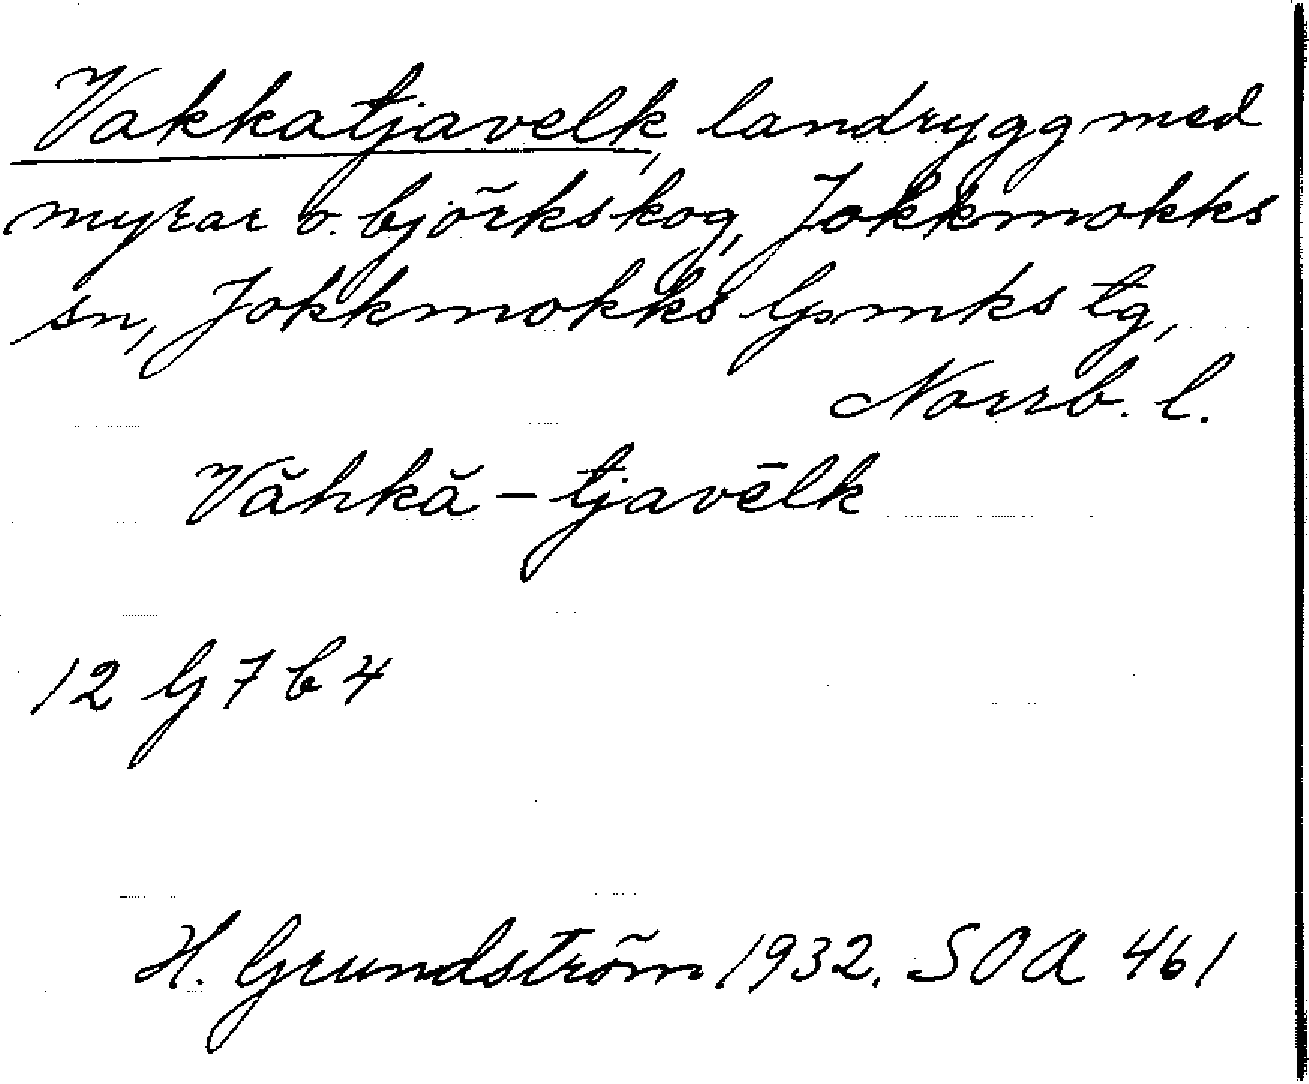 Vakkatjavelk, landrygg med
myrar o. björkskog, Jokkmokks
sn, Jokkmokks lpmks tg,
Norrb. l.
Văhkă – tjavēlk
12 G 7 b 4
H. Grundström 1932. SOA 461